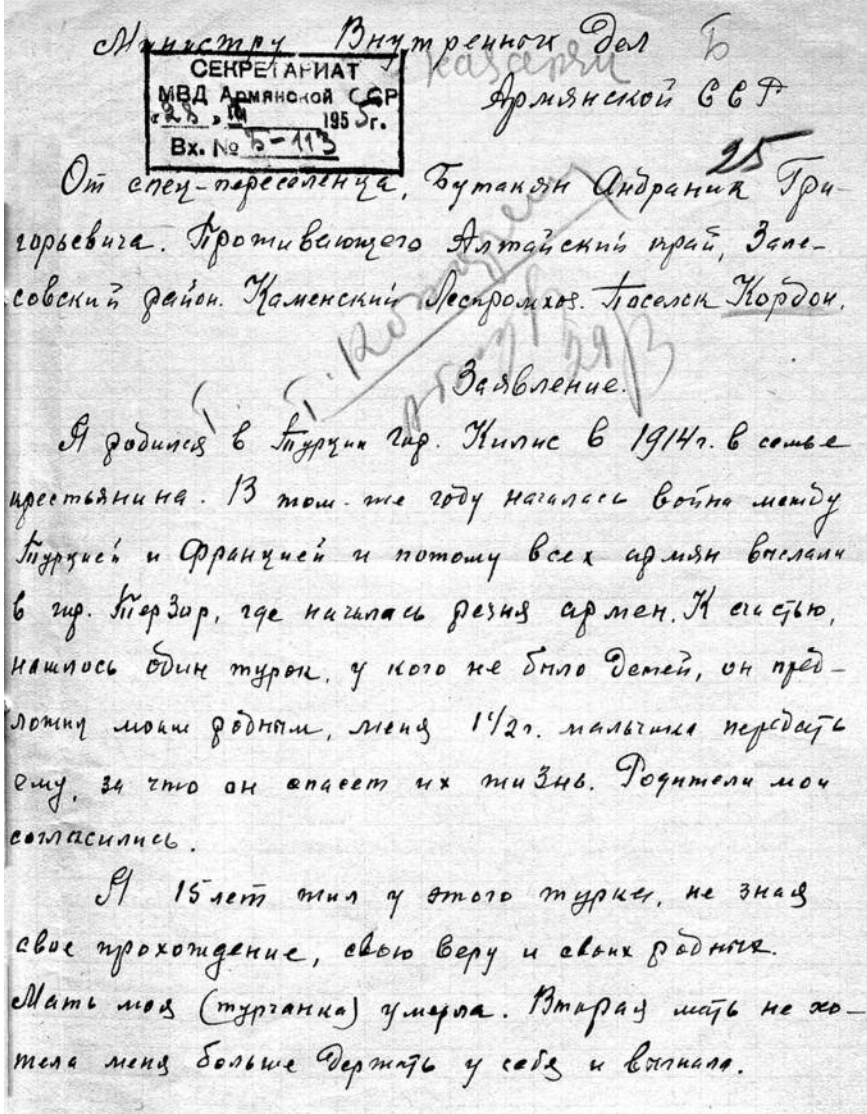 Министру Внутренних Дел
Б
СЕКРЕТАРИАТ
МВД Армянской ССР
"28" III 1955г.
Вх. № Б-113
Армянской ССР
25
От спец-переселенца, Бутакян Андраник Гри-
горьевича. Проживающего Алтайский край, Зале-
совский район. Каменский Леспромхоз. Поселок Кордон.
29/3
Заявление.
Я родился в Турции гор. Килис в 1914г. в семье
крестьянина. В том-же году началась война между
Турцией и Францией и потому всех армян выслали
в гор. ТерЗор, где началась резня армен. К счастью,
нашлось один турок, у кого не было детей, он пред-
ложил моим родным, меня 1 1/2г. мальчика передать
ему, за что он спасет их жизнь. Родители мои
согласились.
Я 15 лет жил у этого турка, не зная
свое прохождение, свою веру и своих родных.
Мать моя (турчанка) умерла. Вторая мать не хо-
тела меня больше держать у себя и выгнала.